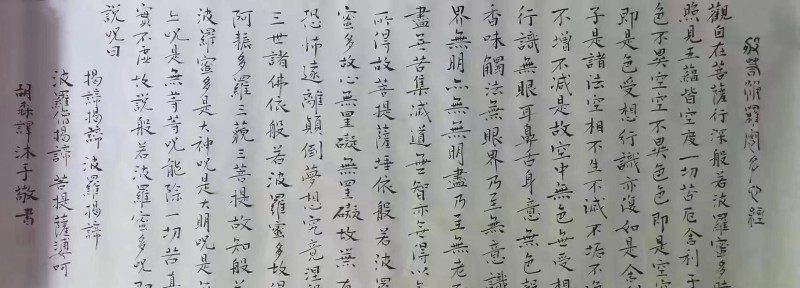 般若波羅蜜多心經
觀自在菩薩行深般若波羅蜜多時
照見五蘊皆空度一切苦厄舍利子
色不異空空不異色色即是空空
即是色受想行識亦復如是舍利
子是諸法空相不生不滅不垢不淨
不增不減是故空中無色無受想
行識無眼耳鼻舌身意無色聲
香味觸法無眼界乃至無意識
界無明亦無無明盡乃至無老死
盡無苦集滅道無智亦無得以無
所得故菩提薩埵依般若波羅
蜜多故心無罣礙無罣礙故無有
恐怖遠離顛倒夢想究竟涅槃
三世諸佛依般若波羅蜜多故得
阿耨多羅三藐三菩提故知般若
波羅蜜多是大神咒是大明咒是無
上咒是無等等咒能除一切苦真
實不虛故說般若波羅蜜多咒即
說呪曰
揭諦揭諦 波羅揭諦
波羅僧揭諦 菩提薩婆呵
胡 譯沐手敬書